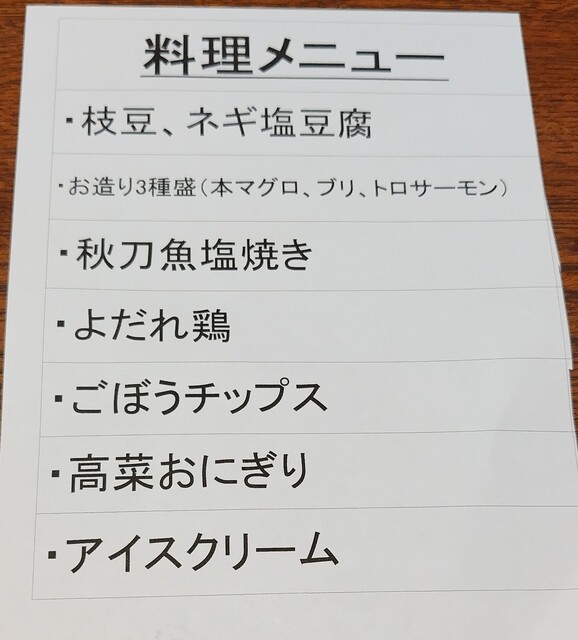 料理メニュー
・枝豆、ネギ塩豆腐
・お造り3種盛(本マグロ、ブリ、トロサーモン)
・秋刀魚塩焼き
・よだれ鶏
・ごぼうチップス
・高菜おにぎり
・アイスクリーム